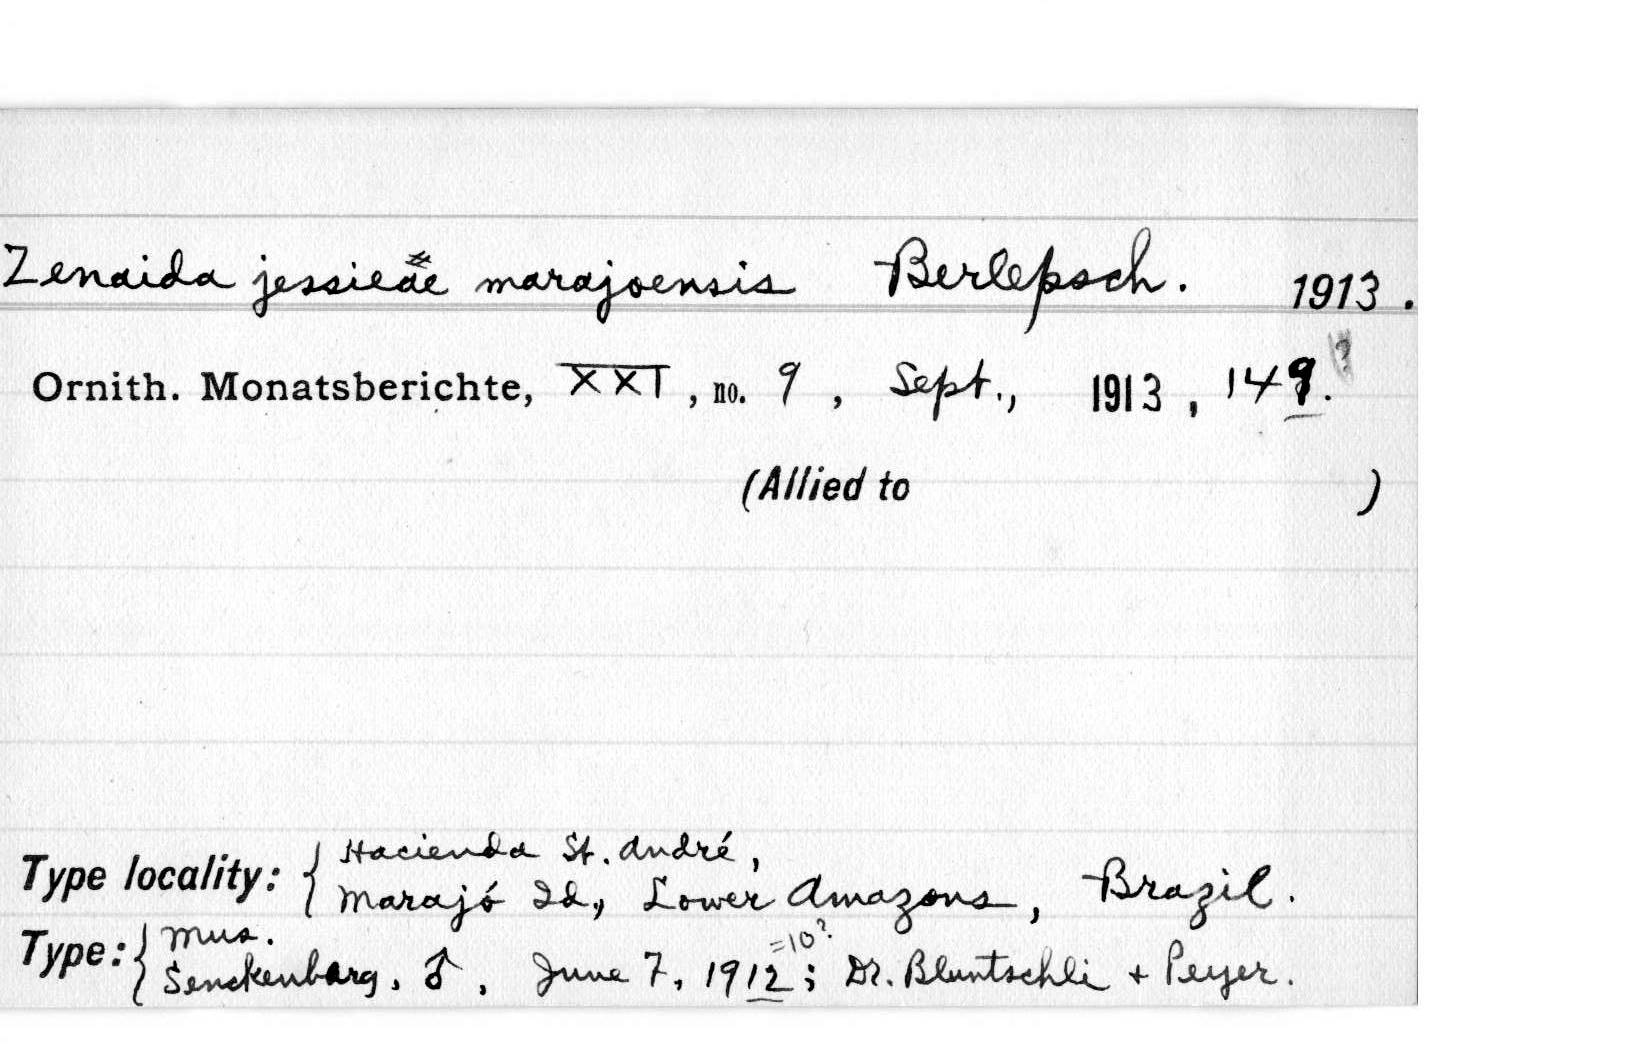 Zenaida jessieae marajoensis Berlepsch. 1913.
Ornith. Monatsberichte, XXI, no. 9, Sept., 1913, 149.?
(Allied to )
Type locality: { Hacienda St. André,
Marajó Id., Lower Amazons, Brazil.
Type: { Mus.
Senckenbarg, ♂, June 7, 1912 =10?; Dr. Bluntschli + Peyer.